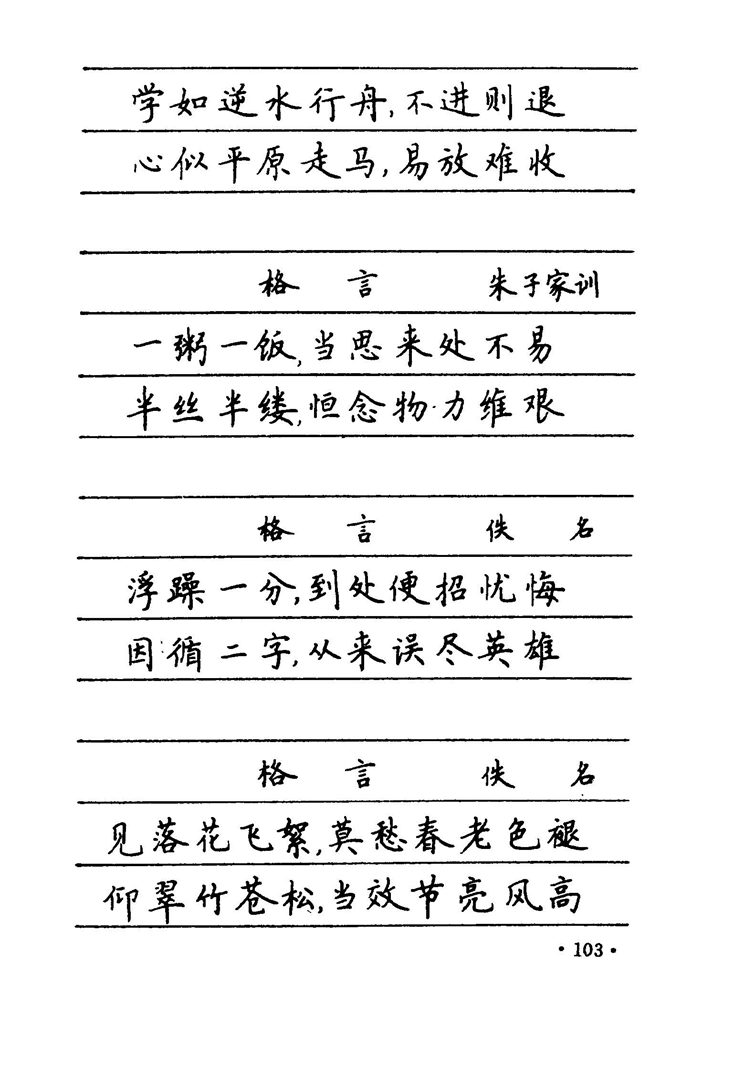 学如逆水行舟,不进则退
心似平原走马,易放难收
格言 朱子家训
一粥一饭,当思来处不易
半丝半缕,恒念物力维艰
格言 佚名
浮躁一分,到处便招忧悔
因循二字,从来误尽英雄
格言 佚名
见落花飞絮,莫愁春老色褪
仰翠竹苍松,当效节亮风高
·103·